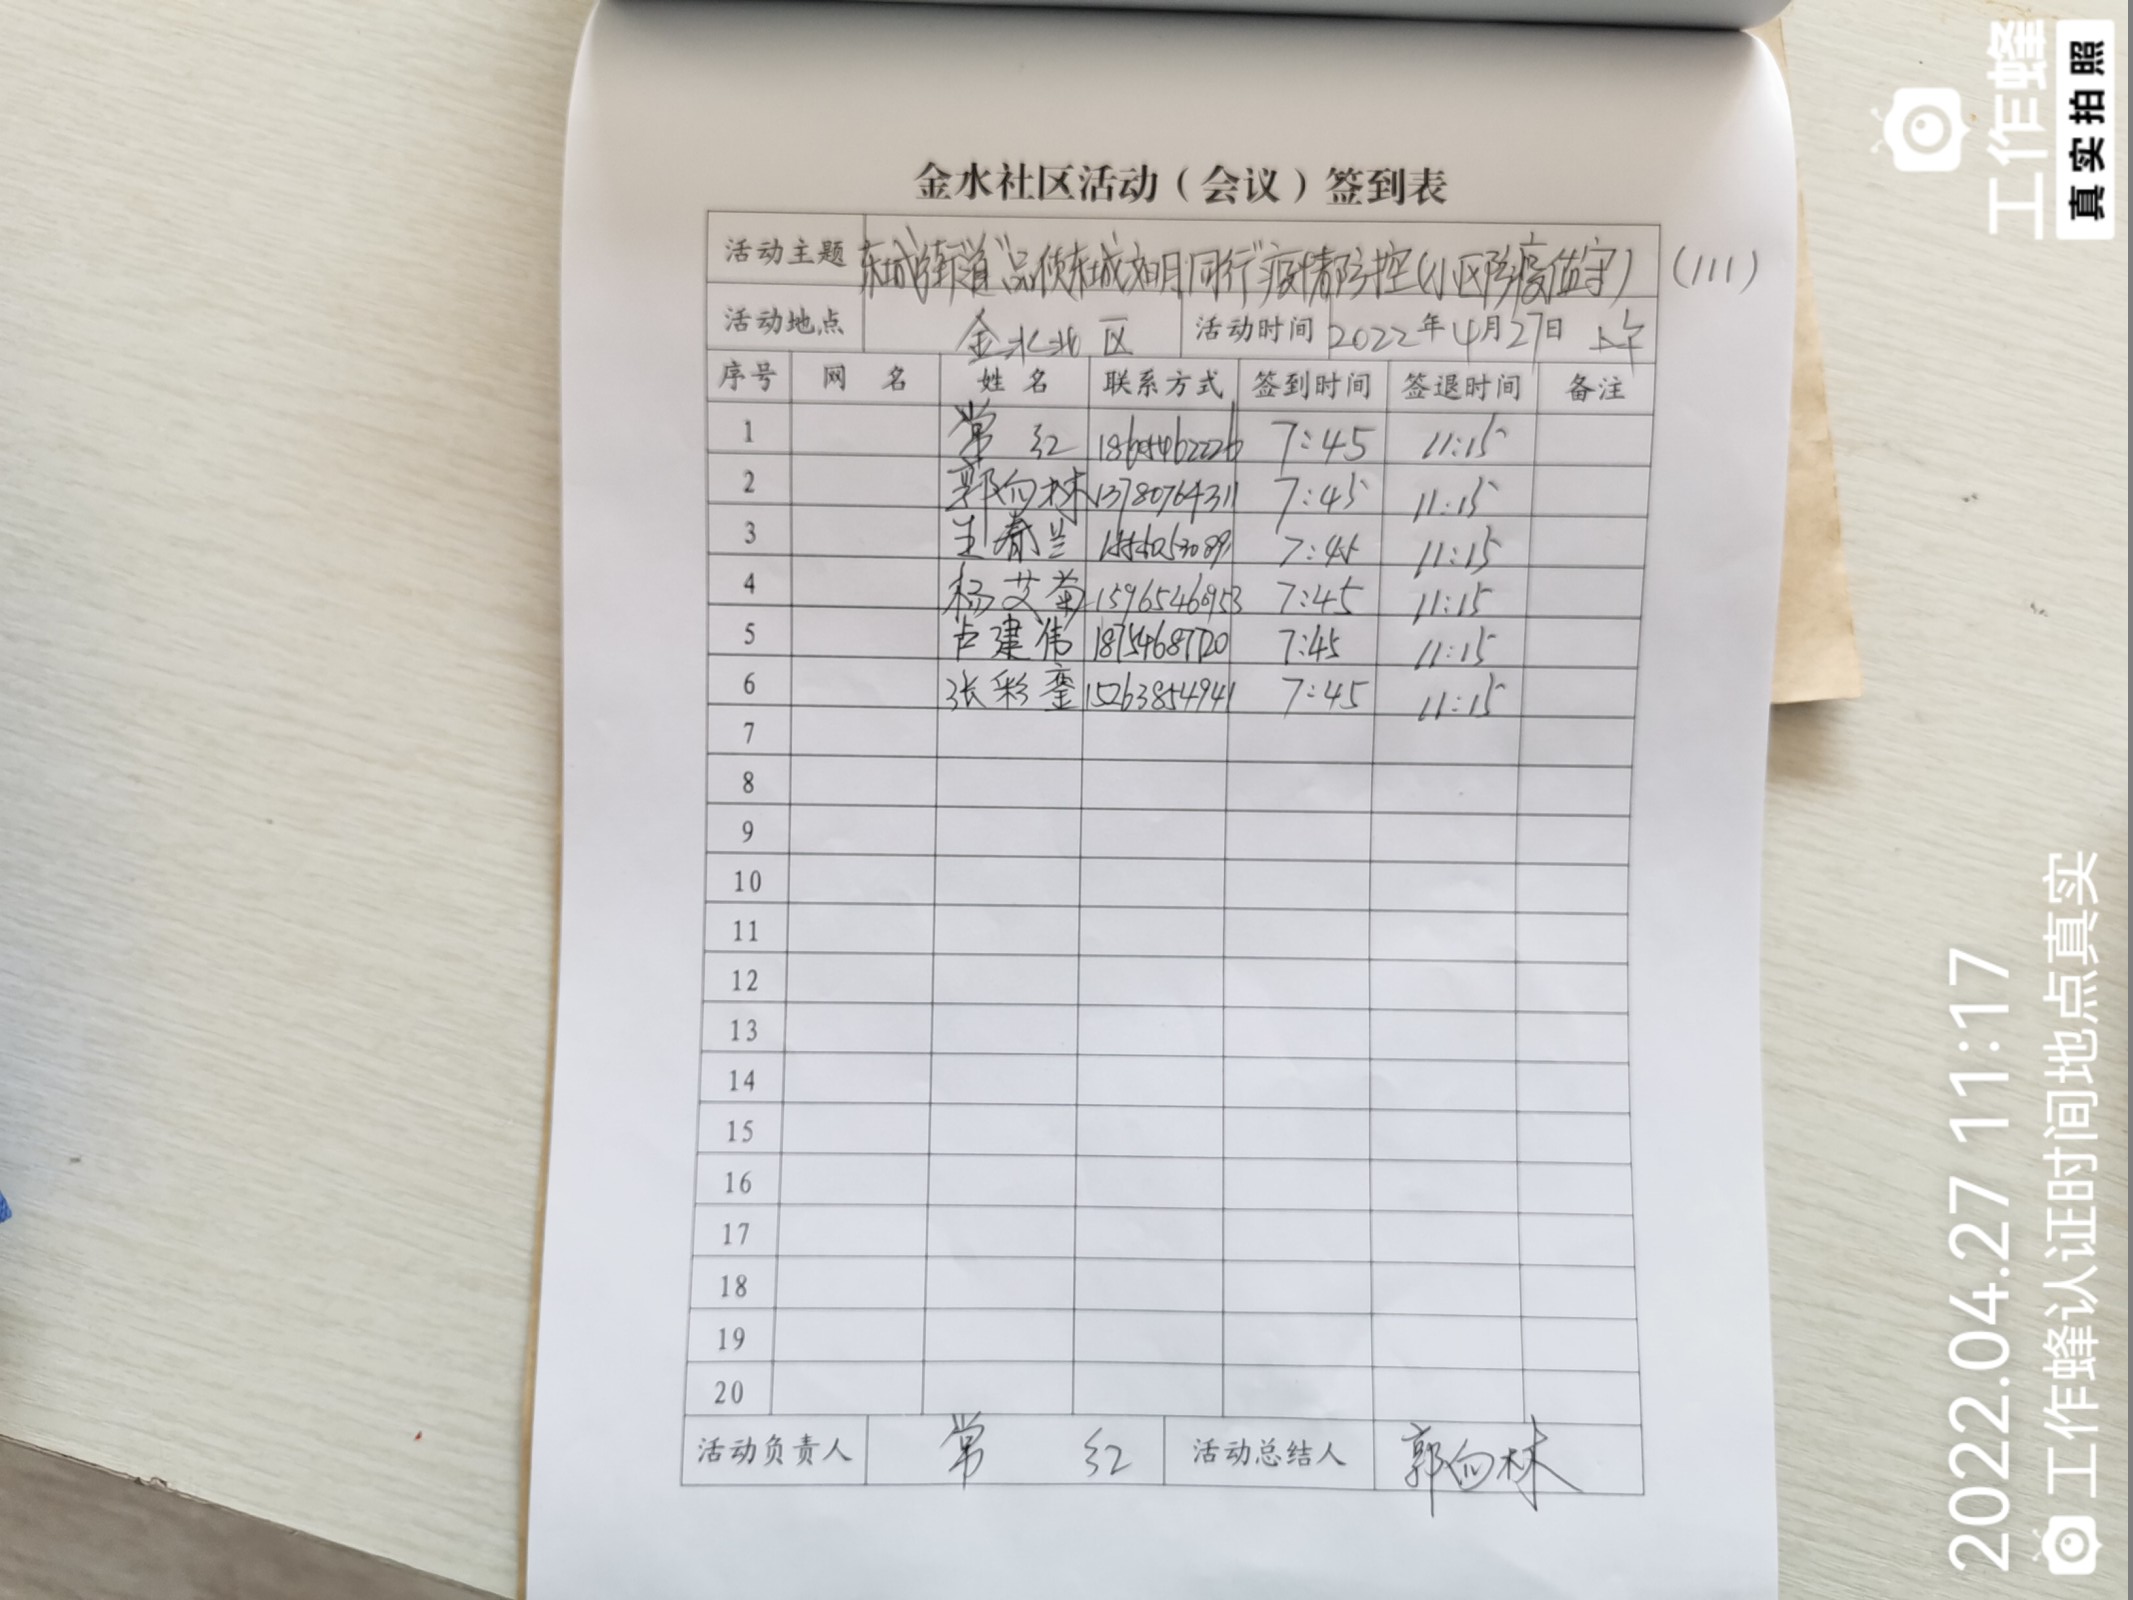 金水社区活动（会议）签到表
活动主题 东城街道"品质东城 如月同行"疫情防控(小区防疫值守) (111)
活动地点 金水北区 活动时间 2022年4月27日 上午
序号 网 名 姓 名 联系方式 签到时间 签退时间 备注
1 常 红 18654662226 7:45 11:15
2 郭向林 13780764311 7:45 11:15
3 王春兰 7:45 11:15
4 杨艾菊 15965460953 7:45 11:15
5 卢建伟 18754687720 7:45 11:15
6 张彩銮 15263854941 7:45 11:15
7
8
9
10
11
12
13
14
15
16
17
18
19
20
活动负责人 常 红 活动总结人 郭向林
工作蜂
真实拍照
2022.04.27 11:17
工作蜂认证时间地点真实